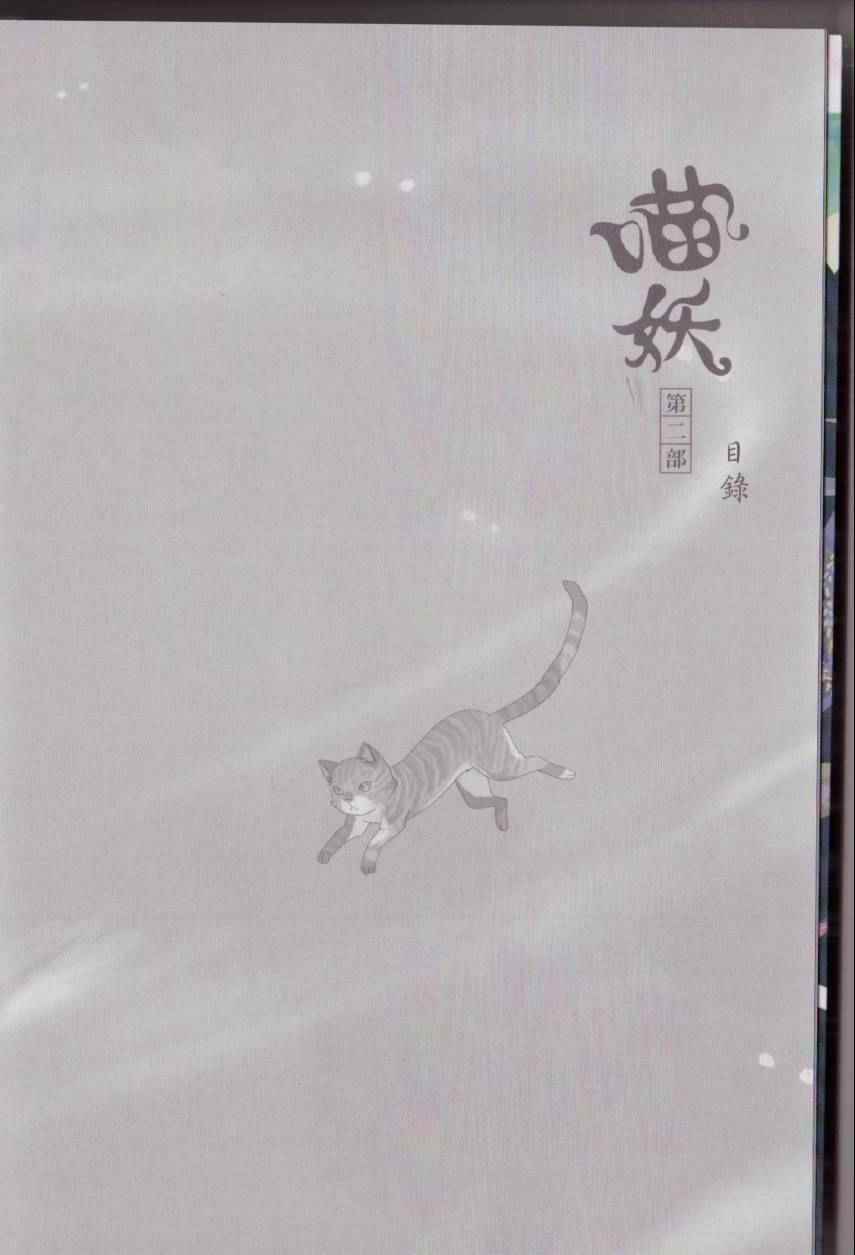 喵妖
第二部
目錄